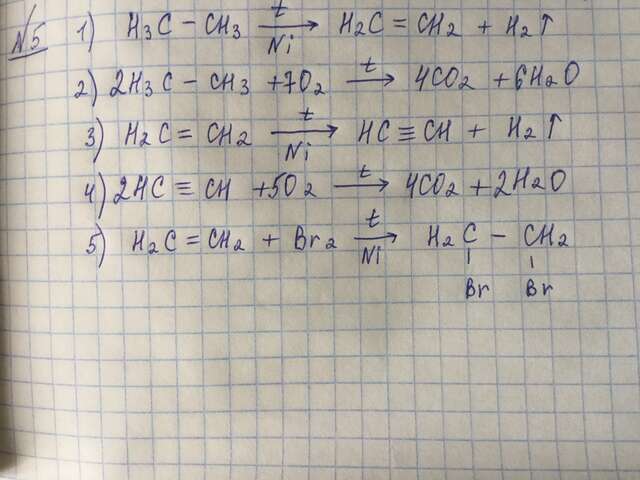 №5 1) H₃C – CH₃ —t/Ni→ H₂C = CH₂ + H₂↑
2) 2H₃C – CH₃ + 7O₂ —t→ 4CO₂ + 6H₂O
3) H₂C = CH₂ —t/Ni→ HC ≡ CH + H₂↑
4) 2HC ≡ CH + 5O₂ —t→ 4CO₂ + 2H₂O
5) H₂C = CH₂ + Br₂ —t/Ni→ H₂C – CH₂
Br Br